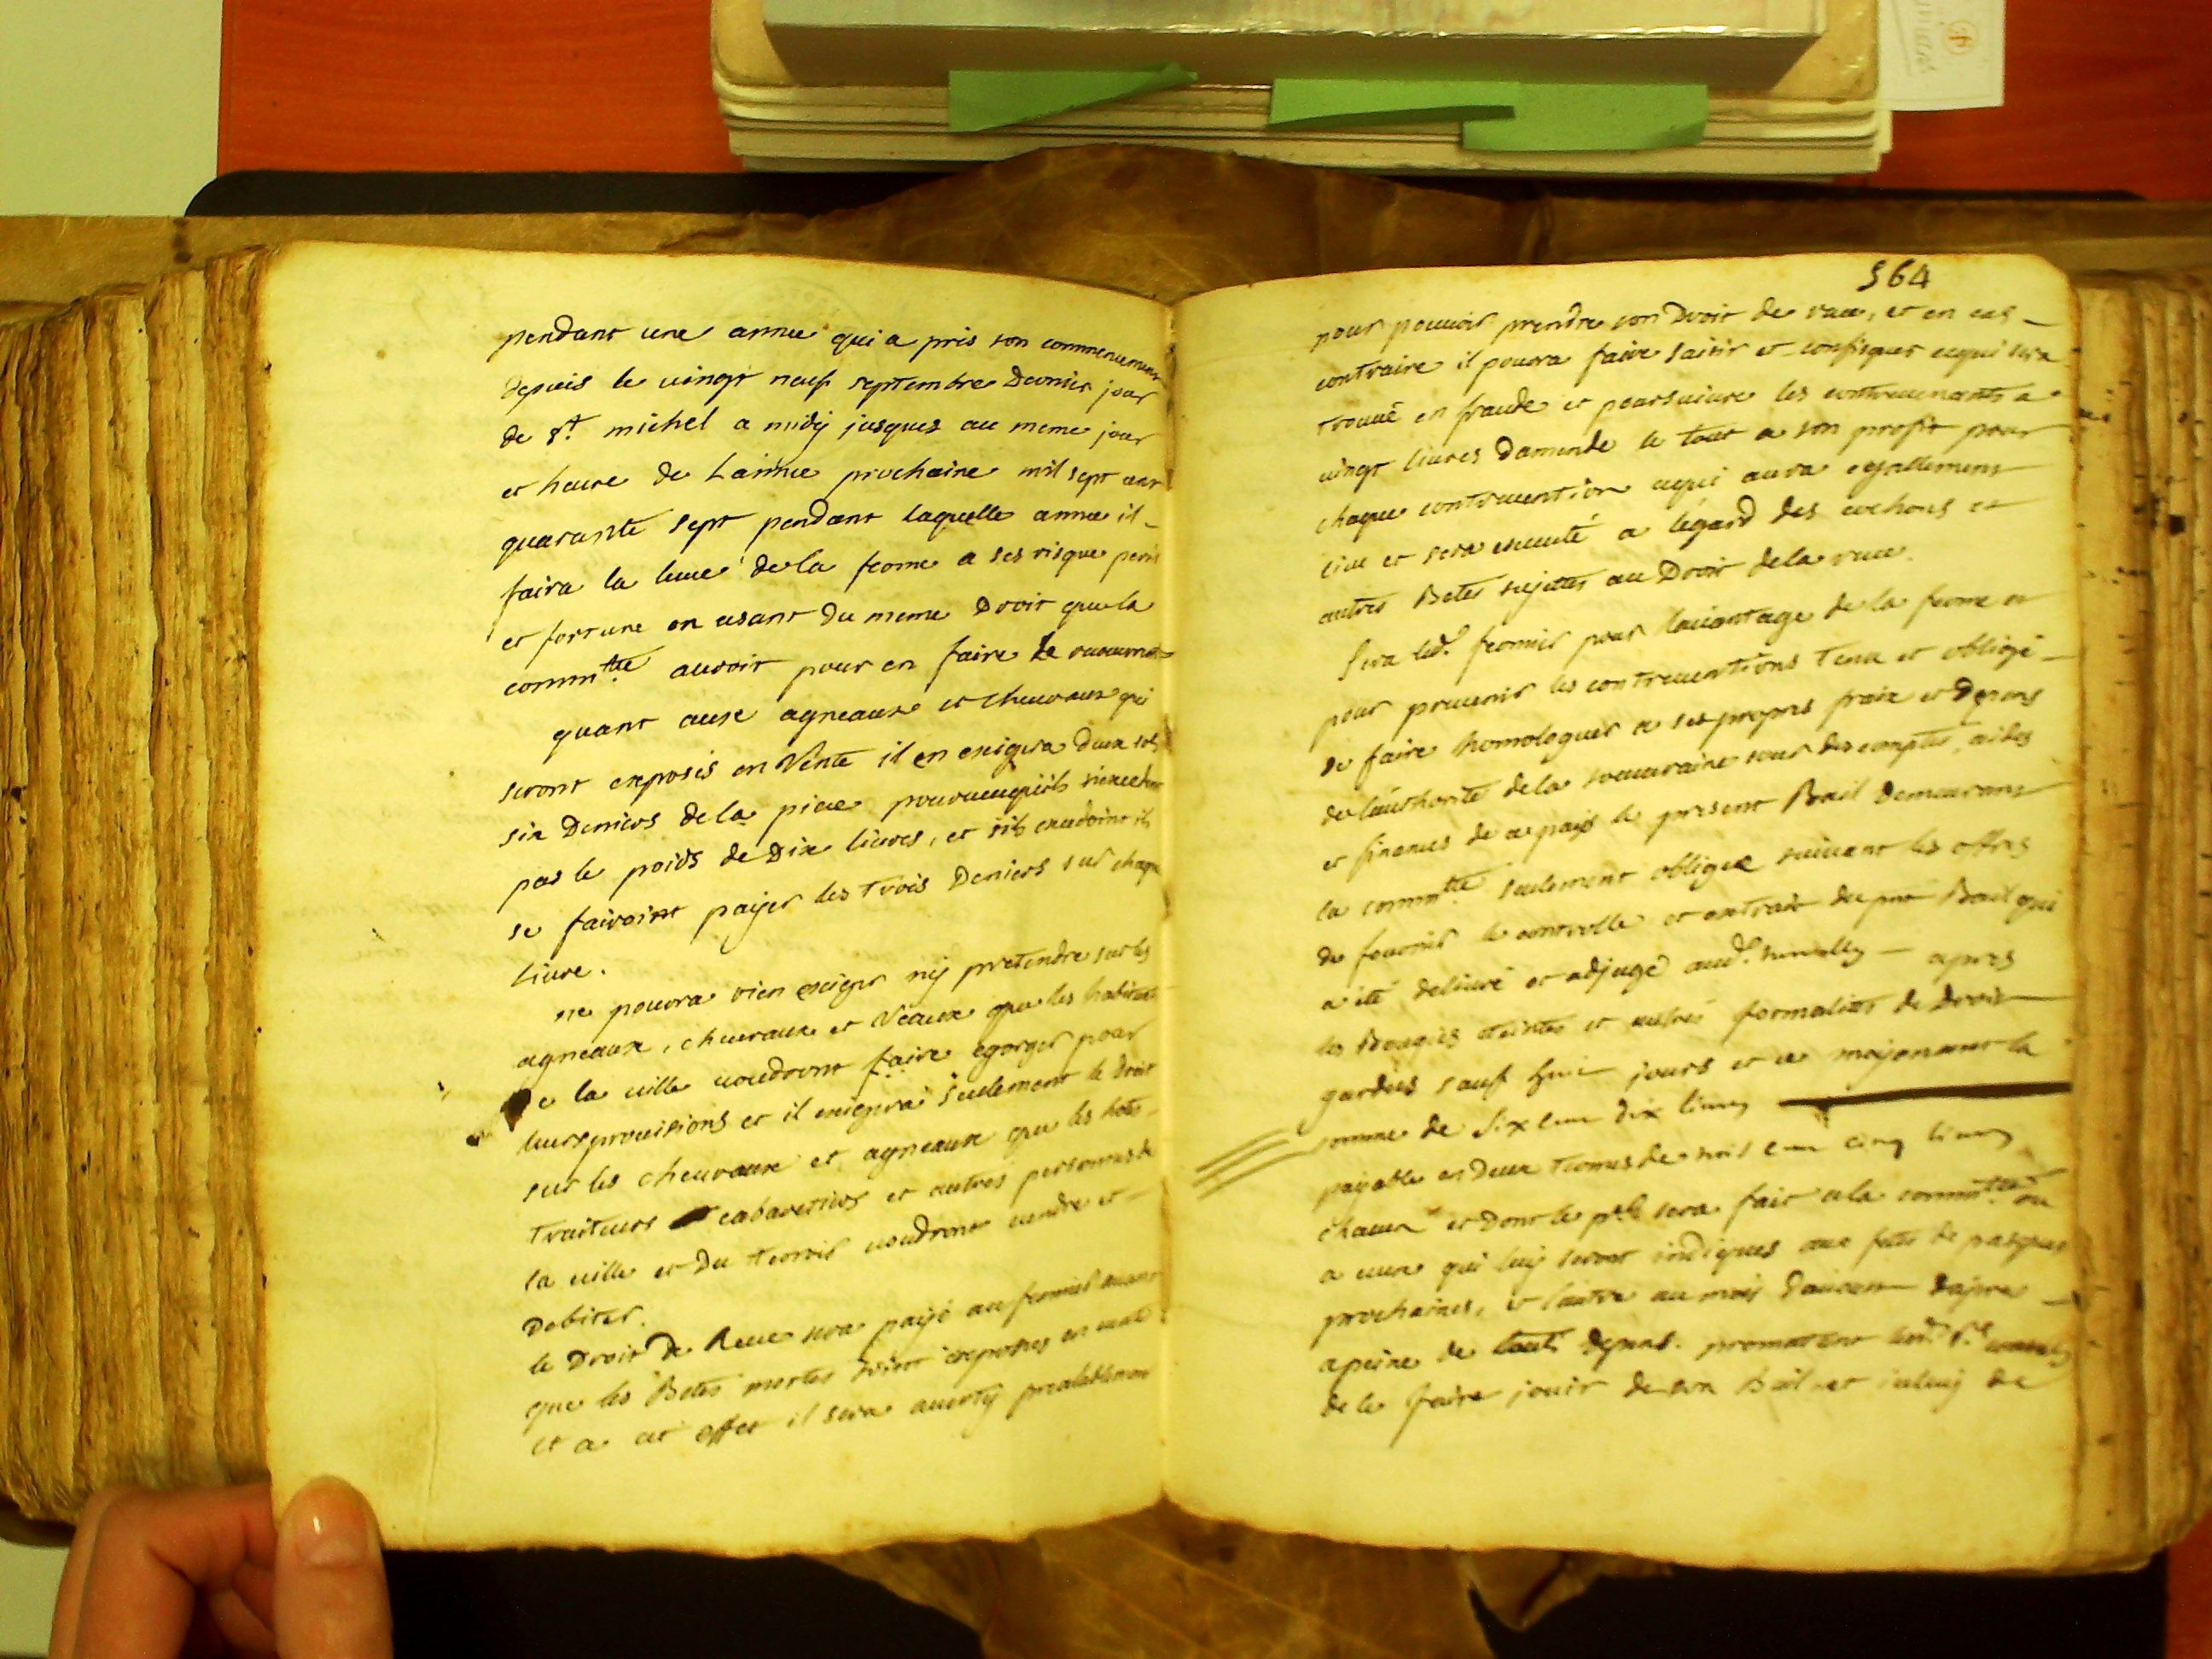 pendant une année qui a pris son commencement
depuis le vingt neuf septembre Dernier jour
de St. michel a midy jusques au meme jour
et heure de Lannée prochaine mil sept cent
quarante sept pendant laquelle année il
faira la levée dela ferme a ses risque perils
et fortune en usant du meme Droit que la
commtté auroit pour en faire le
quant aux agneaux et chevraux qui
seront exposés en Vente il en exigera deux sols
six Deniers dela piece pourveu quils nexcedent
pas le poids de Dix livres, et sils excedoint ils
se fairoint payer les trois Deniers sur chaque
livre.
ne pourra rien exiger ny pretendre sur les
agneaux, chevraux et Veaux que les habitants
de la ville voudront faire egorger pour
leurs provisions et il exigera seulement le droit
sur les chevraux et agneaux que les hotes
traiteurs cabaretiers et autres personnes de
la ville et Du terroir voudront vendre et
Debiter.
le Droit de Reve sera payé au fermier avant
que les Betes mortes soint exposées en vente
et a cet effet il sera averty prealablement
564
pour pouvoir prendre son Droit de reve, et en cas
contraire il pourra faire saisir et confisquer cequi sera
trouvé en fraude et poursuivre les contrevenants a
vingt livres Damende le tout a son profit pour
chaque contravention cequi aura egallement
lieu et sera executé a légard des cochons et
autres Betes sujettes au Droit dela reve.
sera led. fermier pour lavantage de la ferme et
pour prevenir les contreventions tenu et obligé
de faire homologuer a ses propres fraix et depens
de lauthorité dela souveraine cour des comptes, aides
et finances de ce pays le present Bail demeurant
la commtté seulement obligée suivant les offres
de fournir le controlle et extrait du pnt Bail qui
a été delivré et adjugé aud. apres
les Bougies eteintes et autres formalités de Droit
gardées sauf huit jours et ce moyenant la
somme de Six cent dix livres
payable en Deux termes de trois cent cinq livres
chacun et Dont le pr sera fait a la commtté ou
a ceux qui luy seront indiqués aux fetes de pasques
prochaines, et lautre au mois Daoust dapres
apeine de tous depens. promettant led. Sr.
de le faire jouir de son Bail et iceluy de